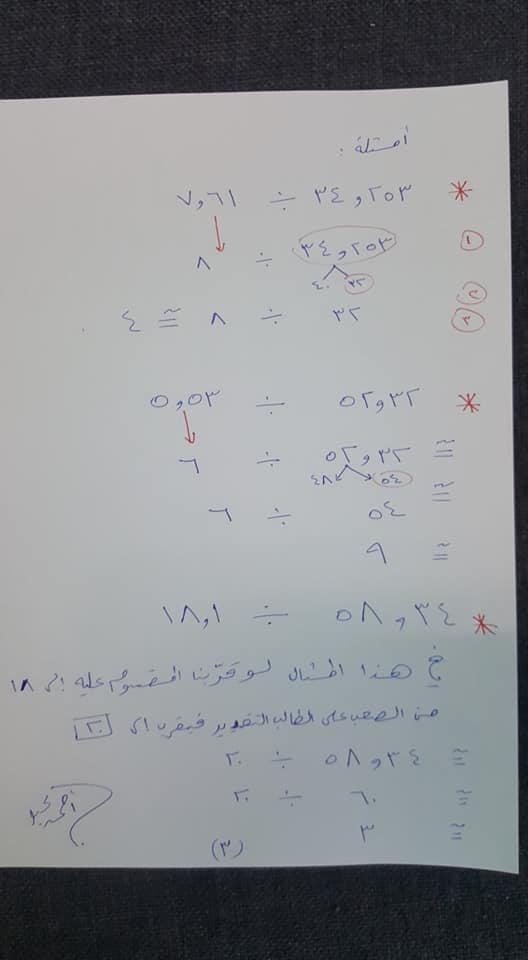 أمثلة :
* ٣٤,٢٥٣ ÷ ٧,٦١
① ٣٤,٢٥٣ ÷ ٨
② ٣٢ ٤٠
③ ٣٢ ÷ ٨ ≅ ٤
* ٥٢,٣٢ ÷ ٥,٥٣
≅ ٥٢,٣٢ ÷ ٦
٥٤ ٤٨
≅ ٥٤ ÷ ٦
≅ ٩
* ٥٨,٣٤ ÷ ١٨,١
في هذا المثال لو قرّبنا المقسوم عليه إلى ١٨
من الصعب على الطالب التقدير فيقرب إلى ٢٠
≅ ٥٨,٣٤ ÷ ٢٠
≅ ٦٠ ÷ ٢٠
≅ ٣
(٣)